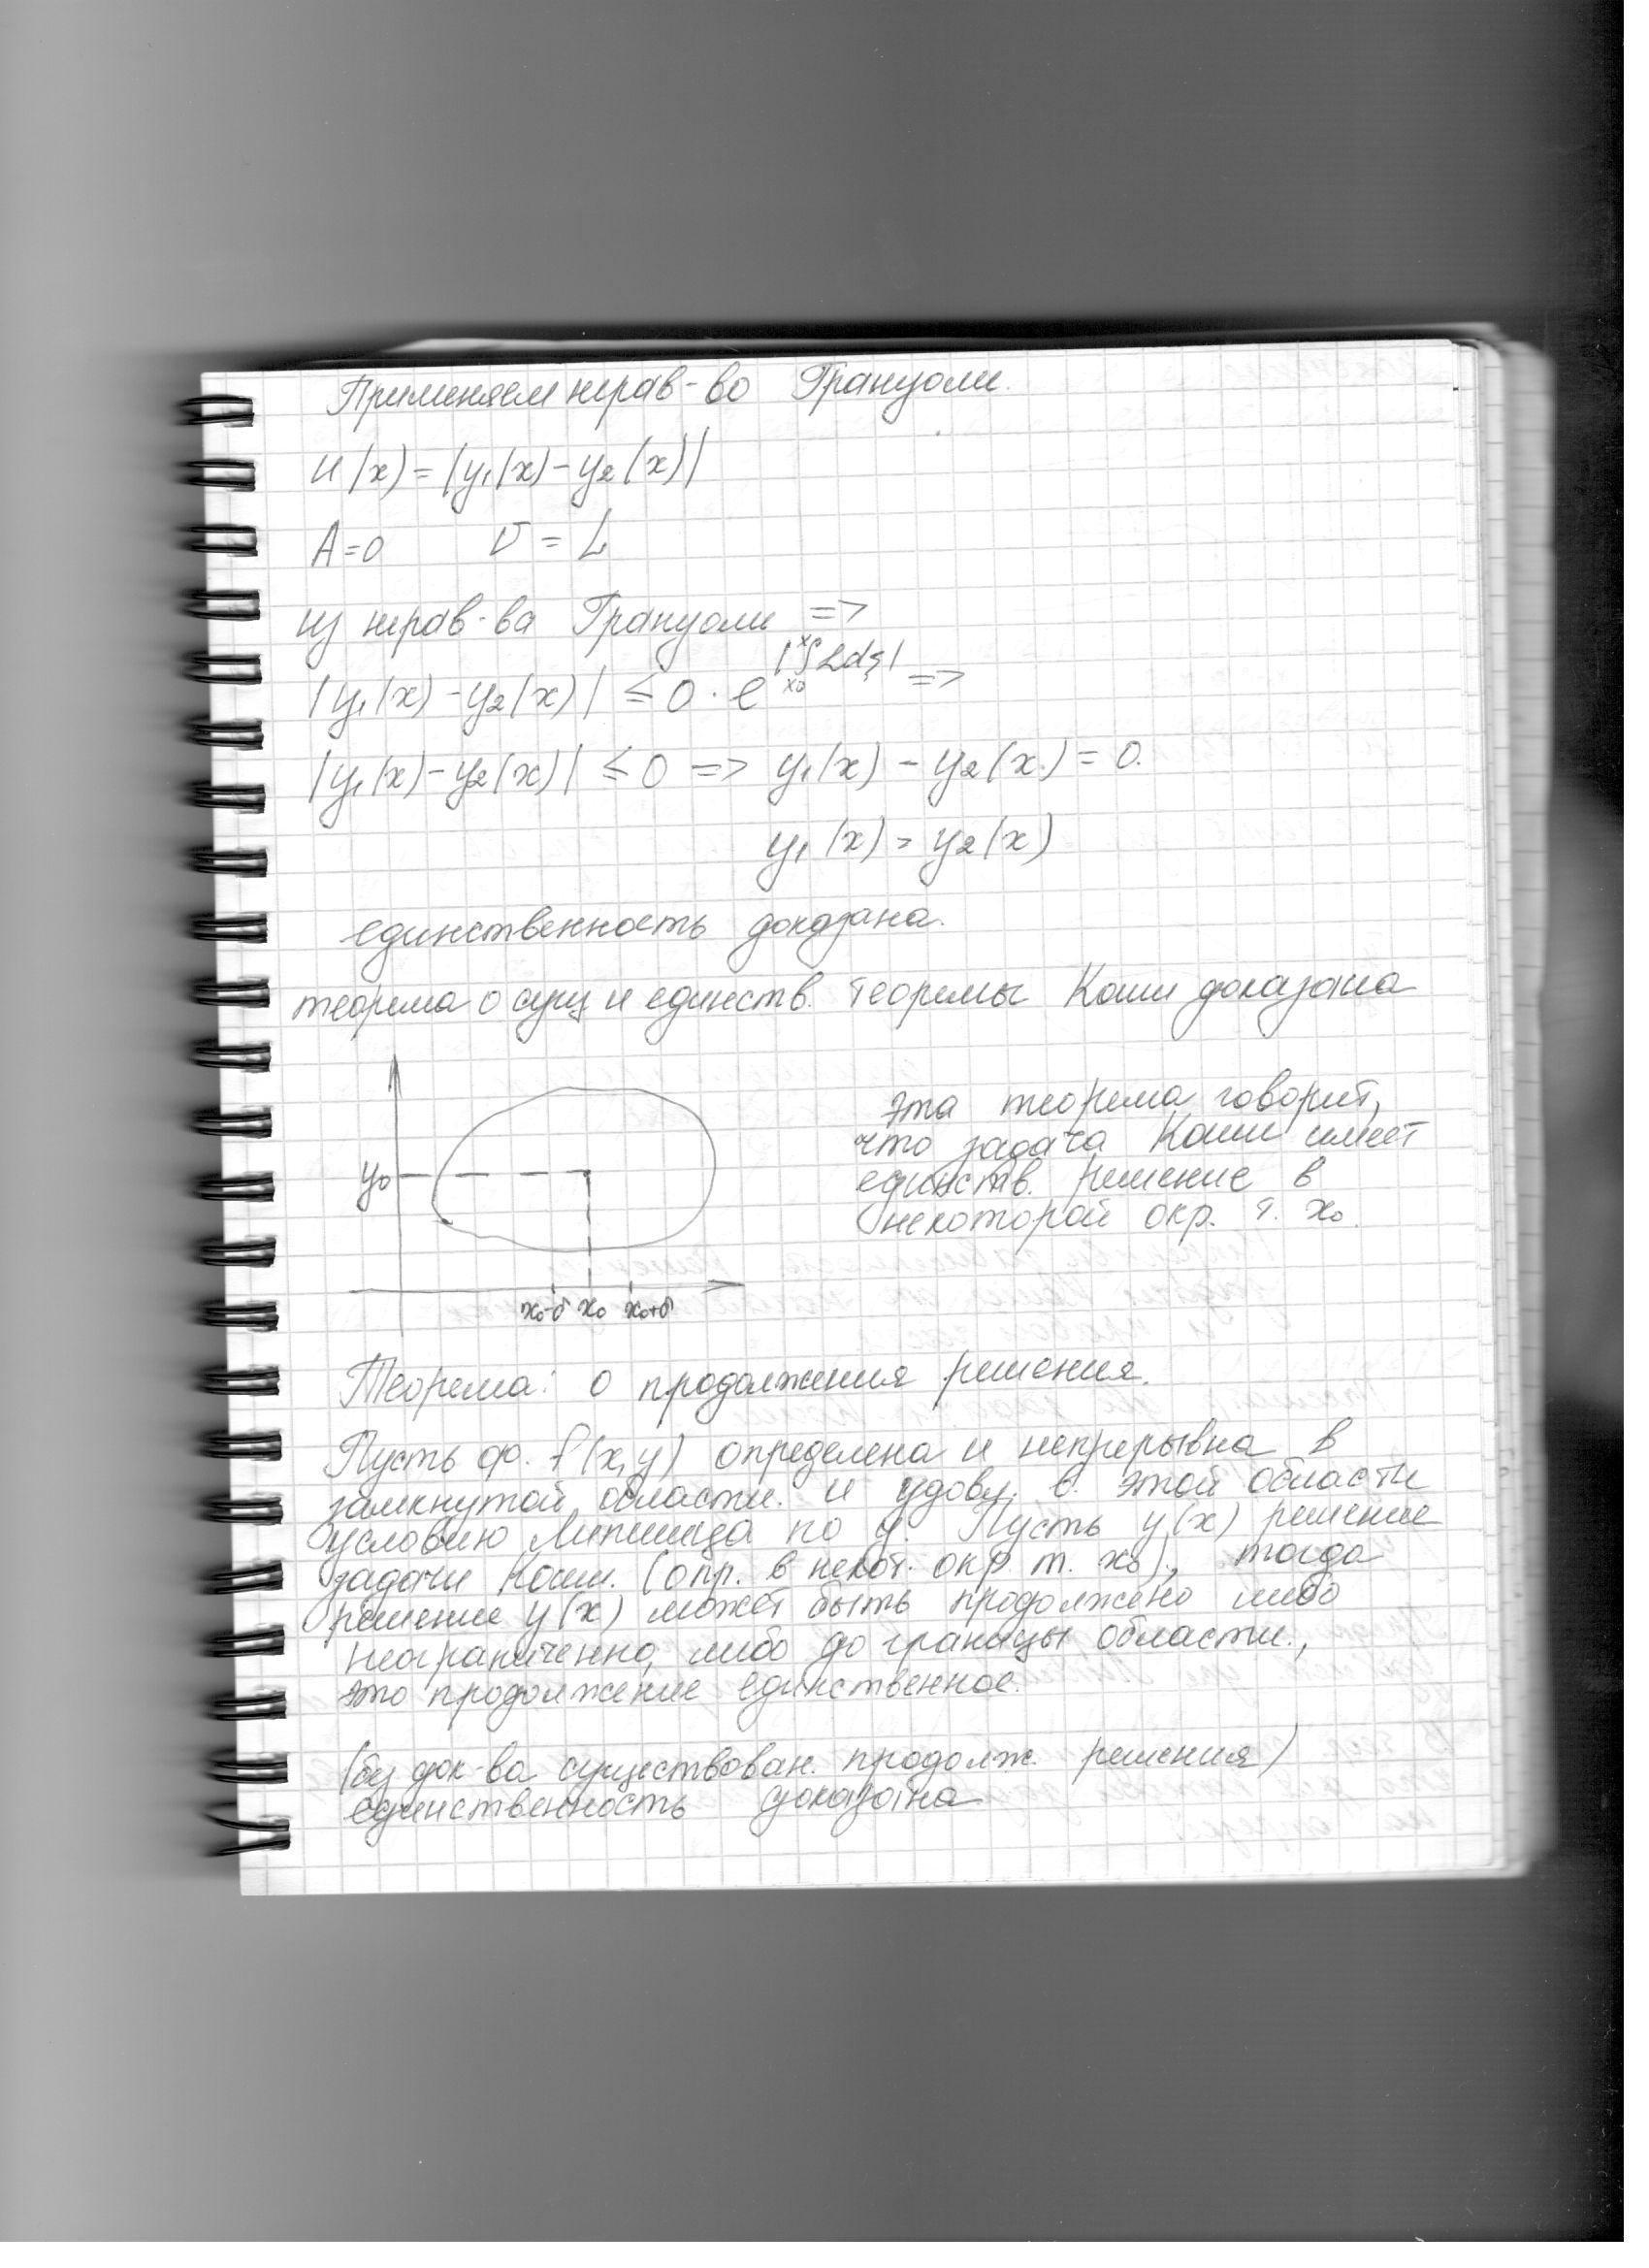 Применяем нерав-во Грануоли.
u(x) = |y₁(x) - y₂(x)|
A=0 v = L
из нерав-ва Грануоли =>
|y₁(x) - y₂(x)| ≤ 0 · e^|∫ₓ₀ˣ Ldξ| =>
|y₁(x) - y₂(x)| ≤ 0 => y₁(x) - y₂(x) = 0.
y₁(x) = y₂(x)
единственность доказана.
теорема о сущ и единств. теоремы Коши доказана
эта теорема говорит,
что задача Коши имеет
единств. решение в
некоторой окр. т. x₀.
y₀
x₀-δ x₀ x₀+δ
Теорема: о продолжения решения.
Пусть ф. f(x,y) определена и непрерывна в
замкнутой области. и удовл. в этой области
условию Липшица по y. Пусть y(x) решение
задачи Коши. (опр. в некот. окр. т. x₀), тогда
решение y(x) может быть продолжено либо
неограниченно, либо до границы области.,
это продолжение единственное.
(без док-ва существован. продолж. решения)
единственность доказана